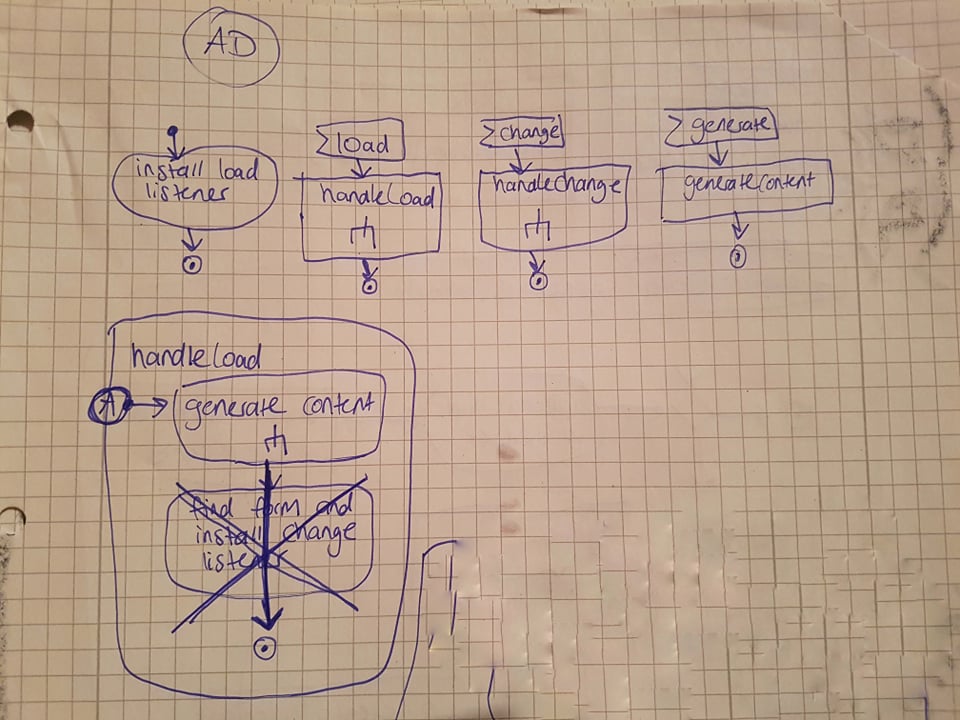 AD
install load
listener
load
handleLoad
change
handleChange
generate
generateContent
handleLoad
A
generate content
find form and
install change
listener